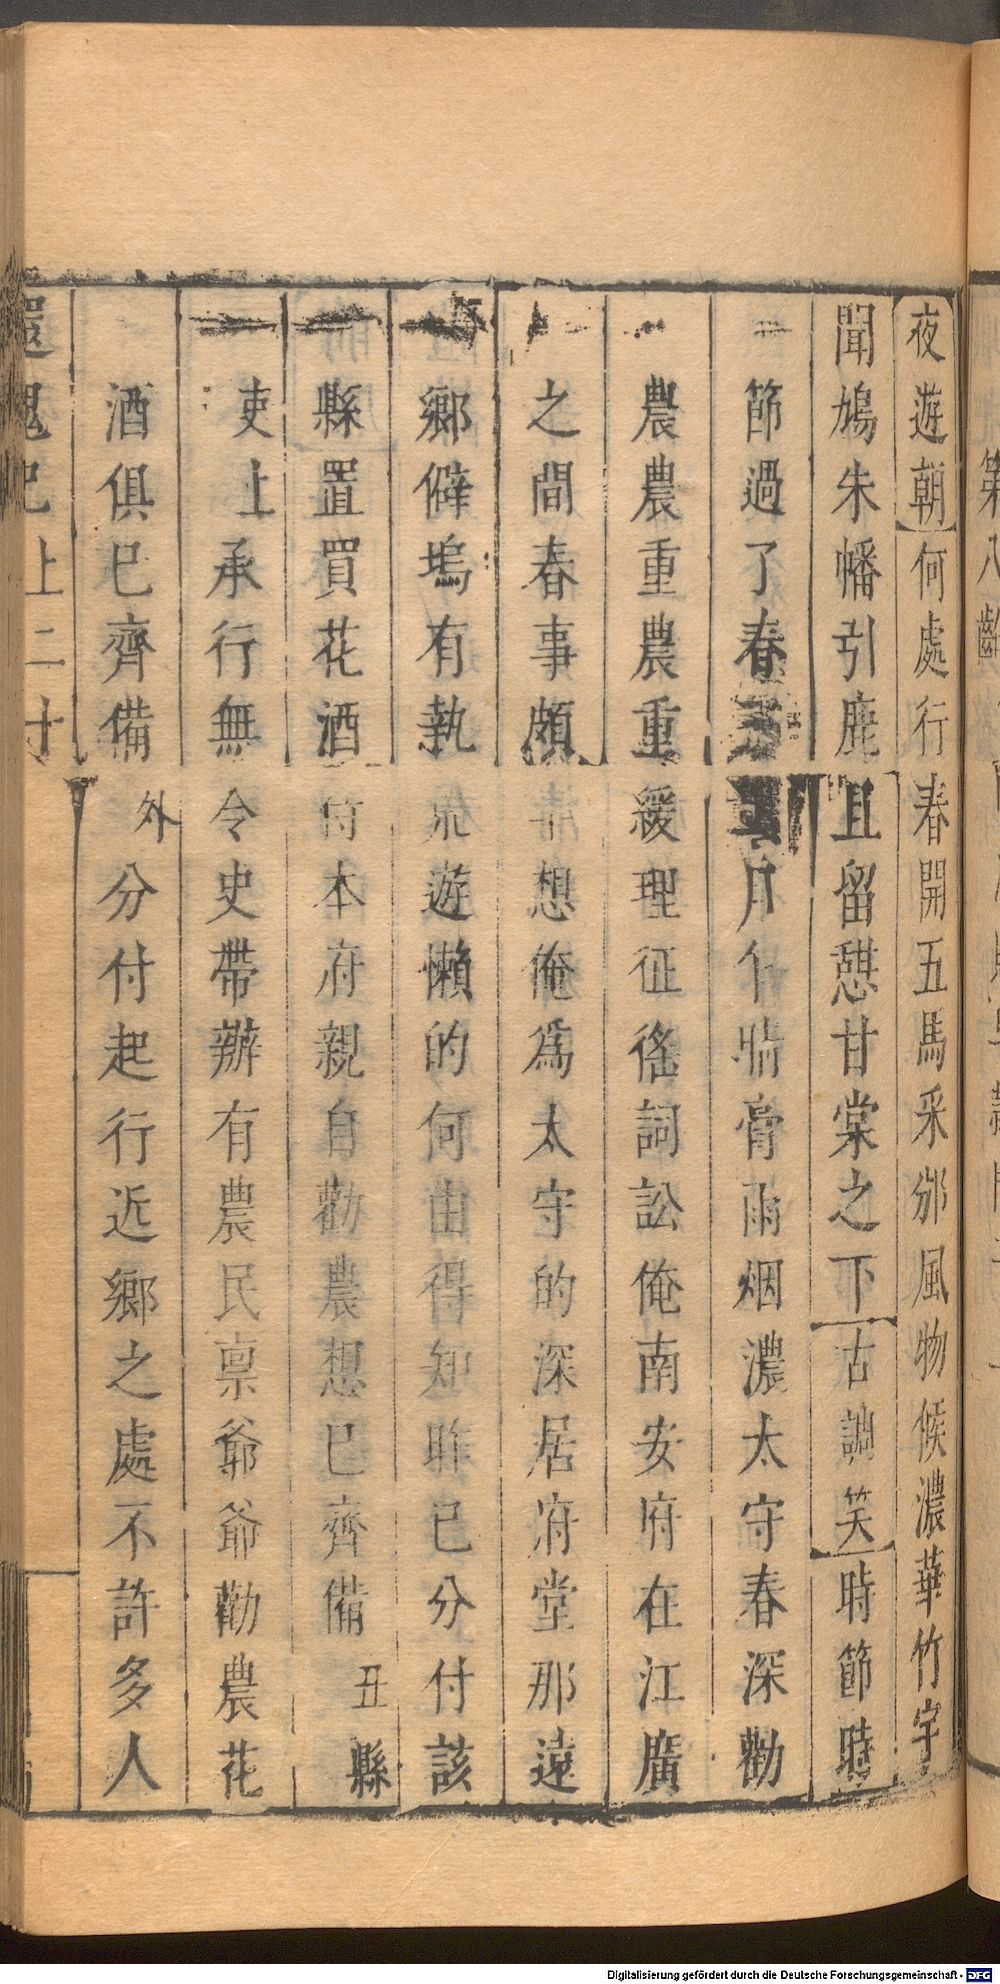 夜遊朝何處行春開五馬采邠風物候濃華竹宇
聞鳩朱幡引鹿且留憩甘棠之下古調笑時節時
節過了春三二月乍晴膏雨烟濃太守春深勸
農農重農重緩理征徭詞訟俺南安府在江廣
之間春事頗早想俺爲太守的深居府堂那遠
鄉僻塢有執荒遊懶的何由得知昨已分付該
縣置買花酒待本府親自勸農想已齊備丑縣
吏上承行無令史帶辦有農民稟爺爺勸農花
酒俱已齊備外分付起行近鄉之處不許多人
還魂記上二十
第八齣
Digitalisierung gefördert durch die Deutsche Forschungsgemeinschaft - DFG